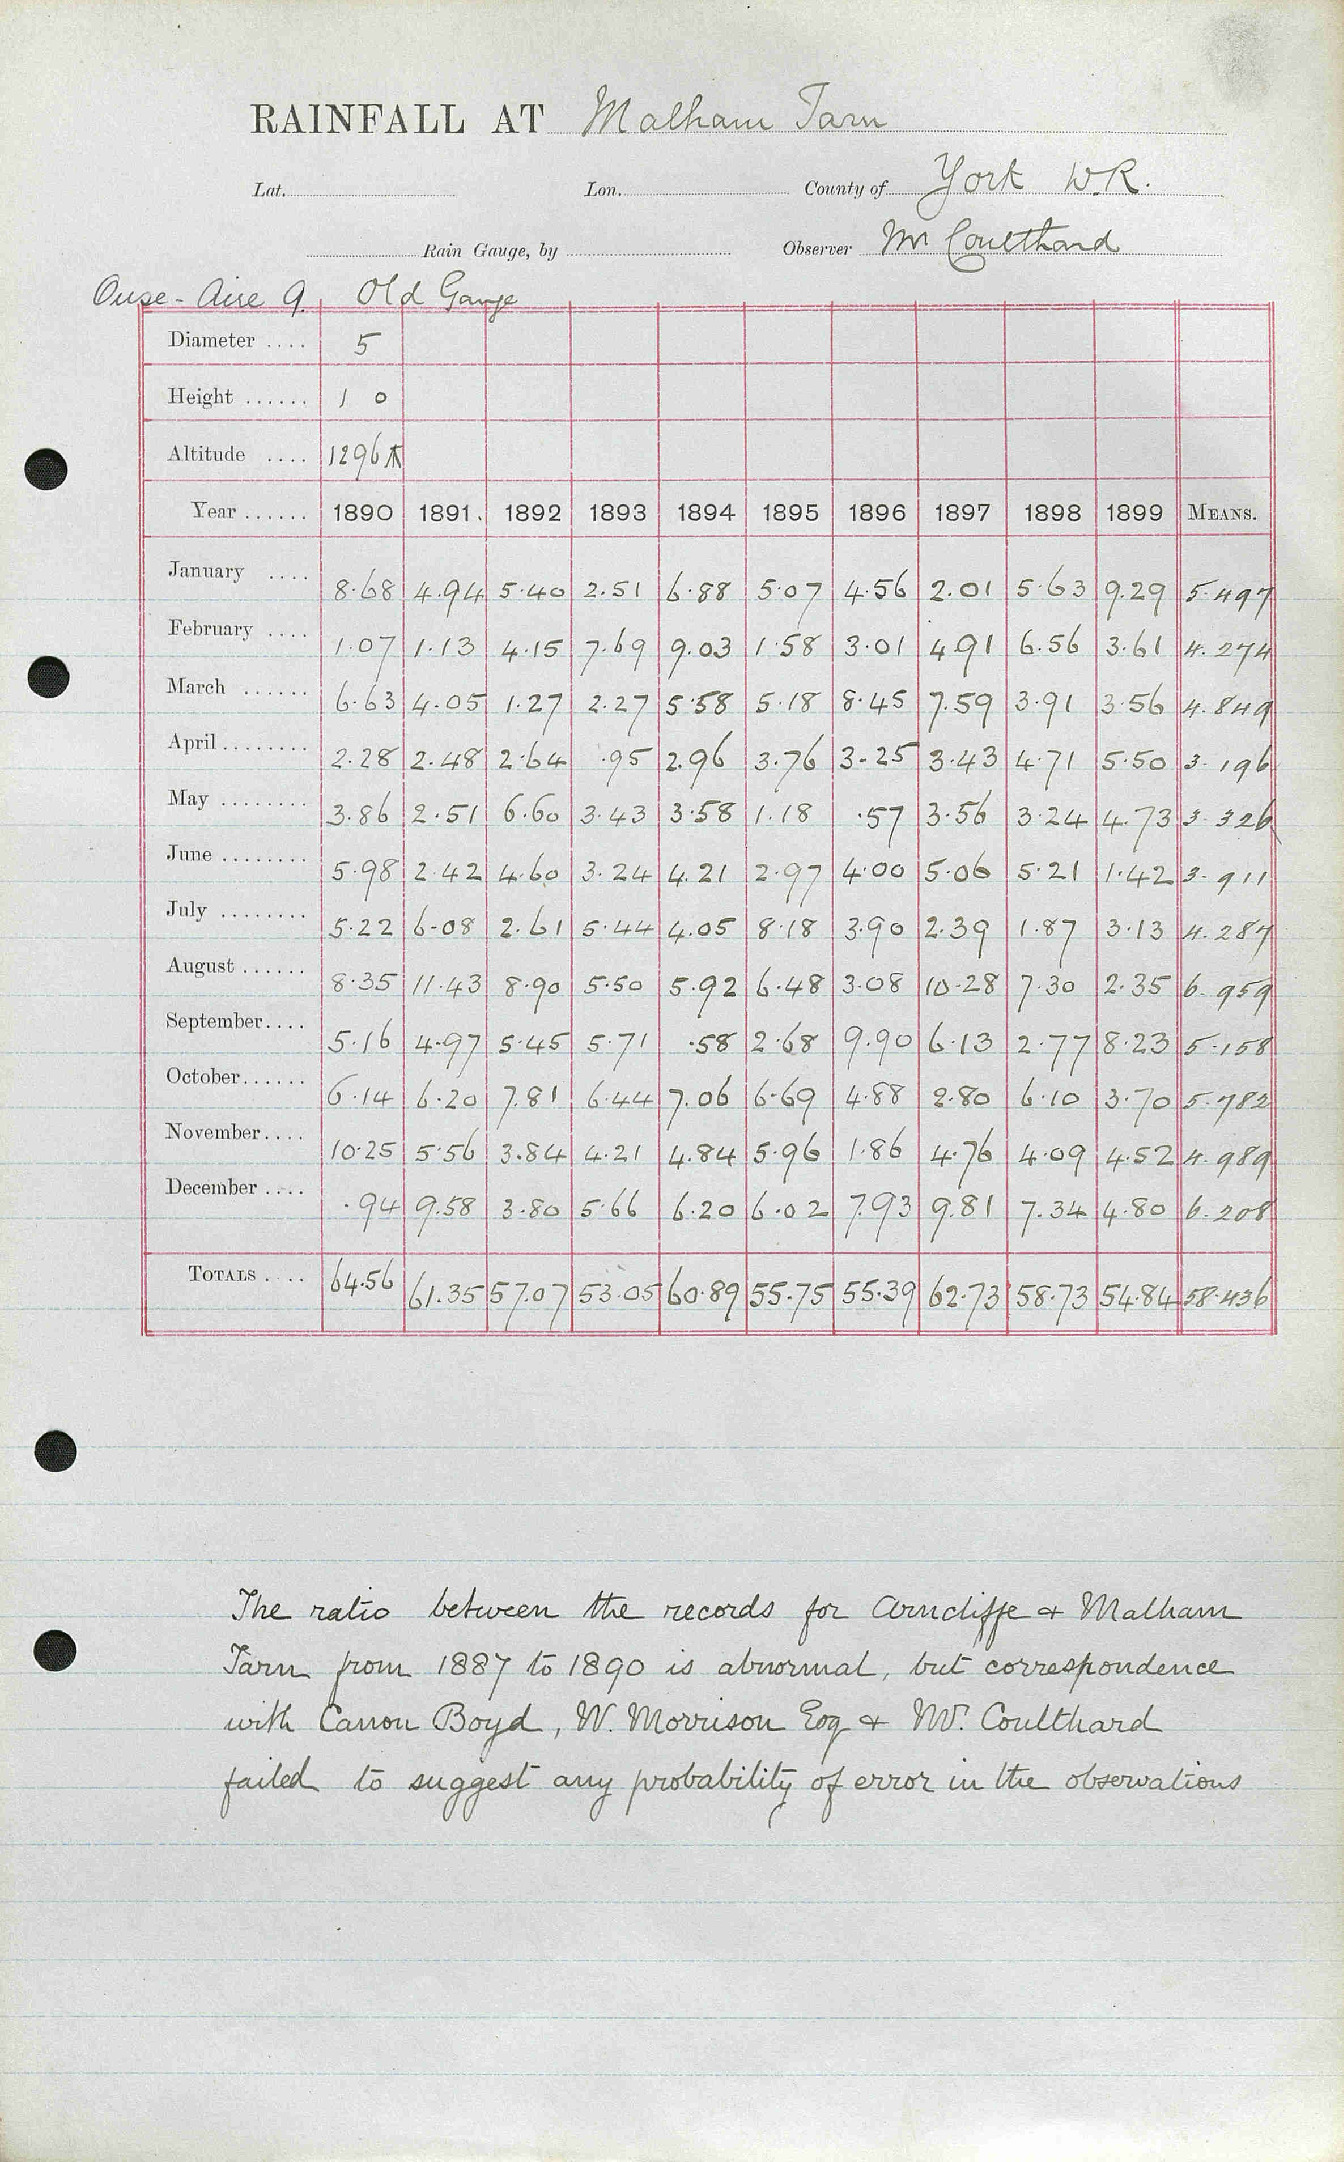 RAINFALL AT Malham Tarn
Lat. Lon. County of York W.R.
Rain Gauge, by Observer Mr Coulthard
Ouse - Aire 9. Old Gauge
Diameter .... 5
Height ...... 1 0
Altitude .... 1296 ft
Year ...... 1890 1891. 1892 1893 1894 1895 1896 1897 1898 1899 MEANS.
January .... 8.68 4.94 5.40 2.51 6.88 5.07 4.56 2.01 5.63 9.29 5.497
February .... 1.07 1.13 4.15 7.69 9.03 1.58 3.01 4.91 6.56 3.61 4.274
March ...... 6.63 4.05 1.27 2.27 5.58 5.18 8.45 7.59 3.91 3.56 4.849
April ........ 2.28 2.48 2.64 .95 2.96 3.76 3.25 3.43 4.71 5.50 3.196
May ........ 3.86 2.51 6.60 3.43 3.58 1.18 .57 3.56 3.24 4.73 3.326
June ........ 5.98 2.42 4.60 3.24 4.21 2.97 4.00 5.06 5.21 1.42 3.911
July ........ 5.22 6.08 2.61 5.44 4.05 8.18 3.90 2.39 1.87 3.13 4.287
August ...... 8.35 11.43 8.90 5.50 5.92 6.48 3.08 10.28 7.30 2.35 6.959
September.... 5.16 4.97 5.45 5.71 .58 2.68 9.90 6.13 2.77 8.23 5.158
October...... 6.14 6.20 7.81 6.44 7.06 6.69 4.88 2.80 6.10 3.70 5.782
November.... 10.25 5.56 3.84 4.21 4.84 5.96 1.86 4.76 4.09 4.52 4.989
December .... .94 9.58 3.80 5.66 6.20 6.02 7.93 9.81 7.34 4.80 6.208
TOTALS .... 64.56 61.35 57.07 53.05 60.89 55.75 55.39 62.73 58.73 54.84 58.436
The ratio between the records for Arncliffe & Malham
Tarn from 1887 to 1890 is abnormal, but correspondence
with Canon Boyd, W. Morrison Esq & Mr. Coulthard
failed to suggest any probability of error in the observations